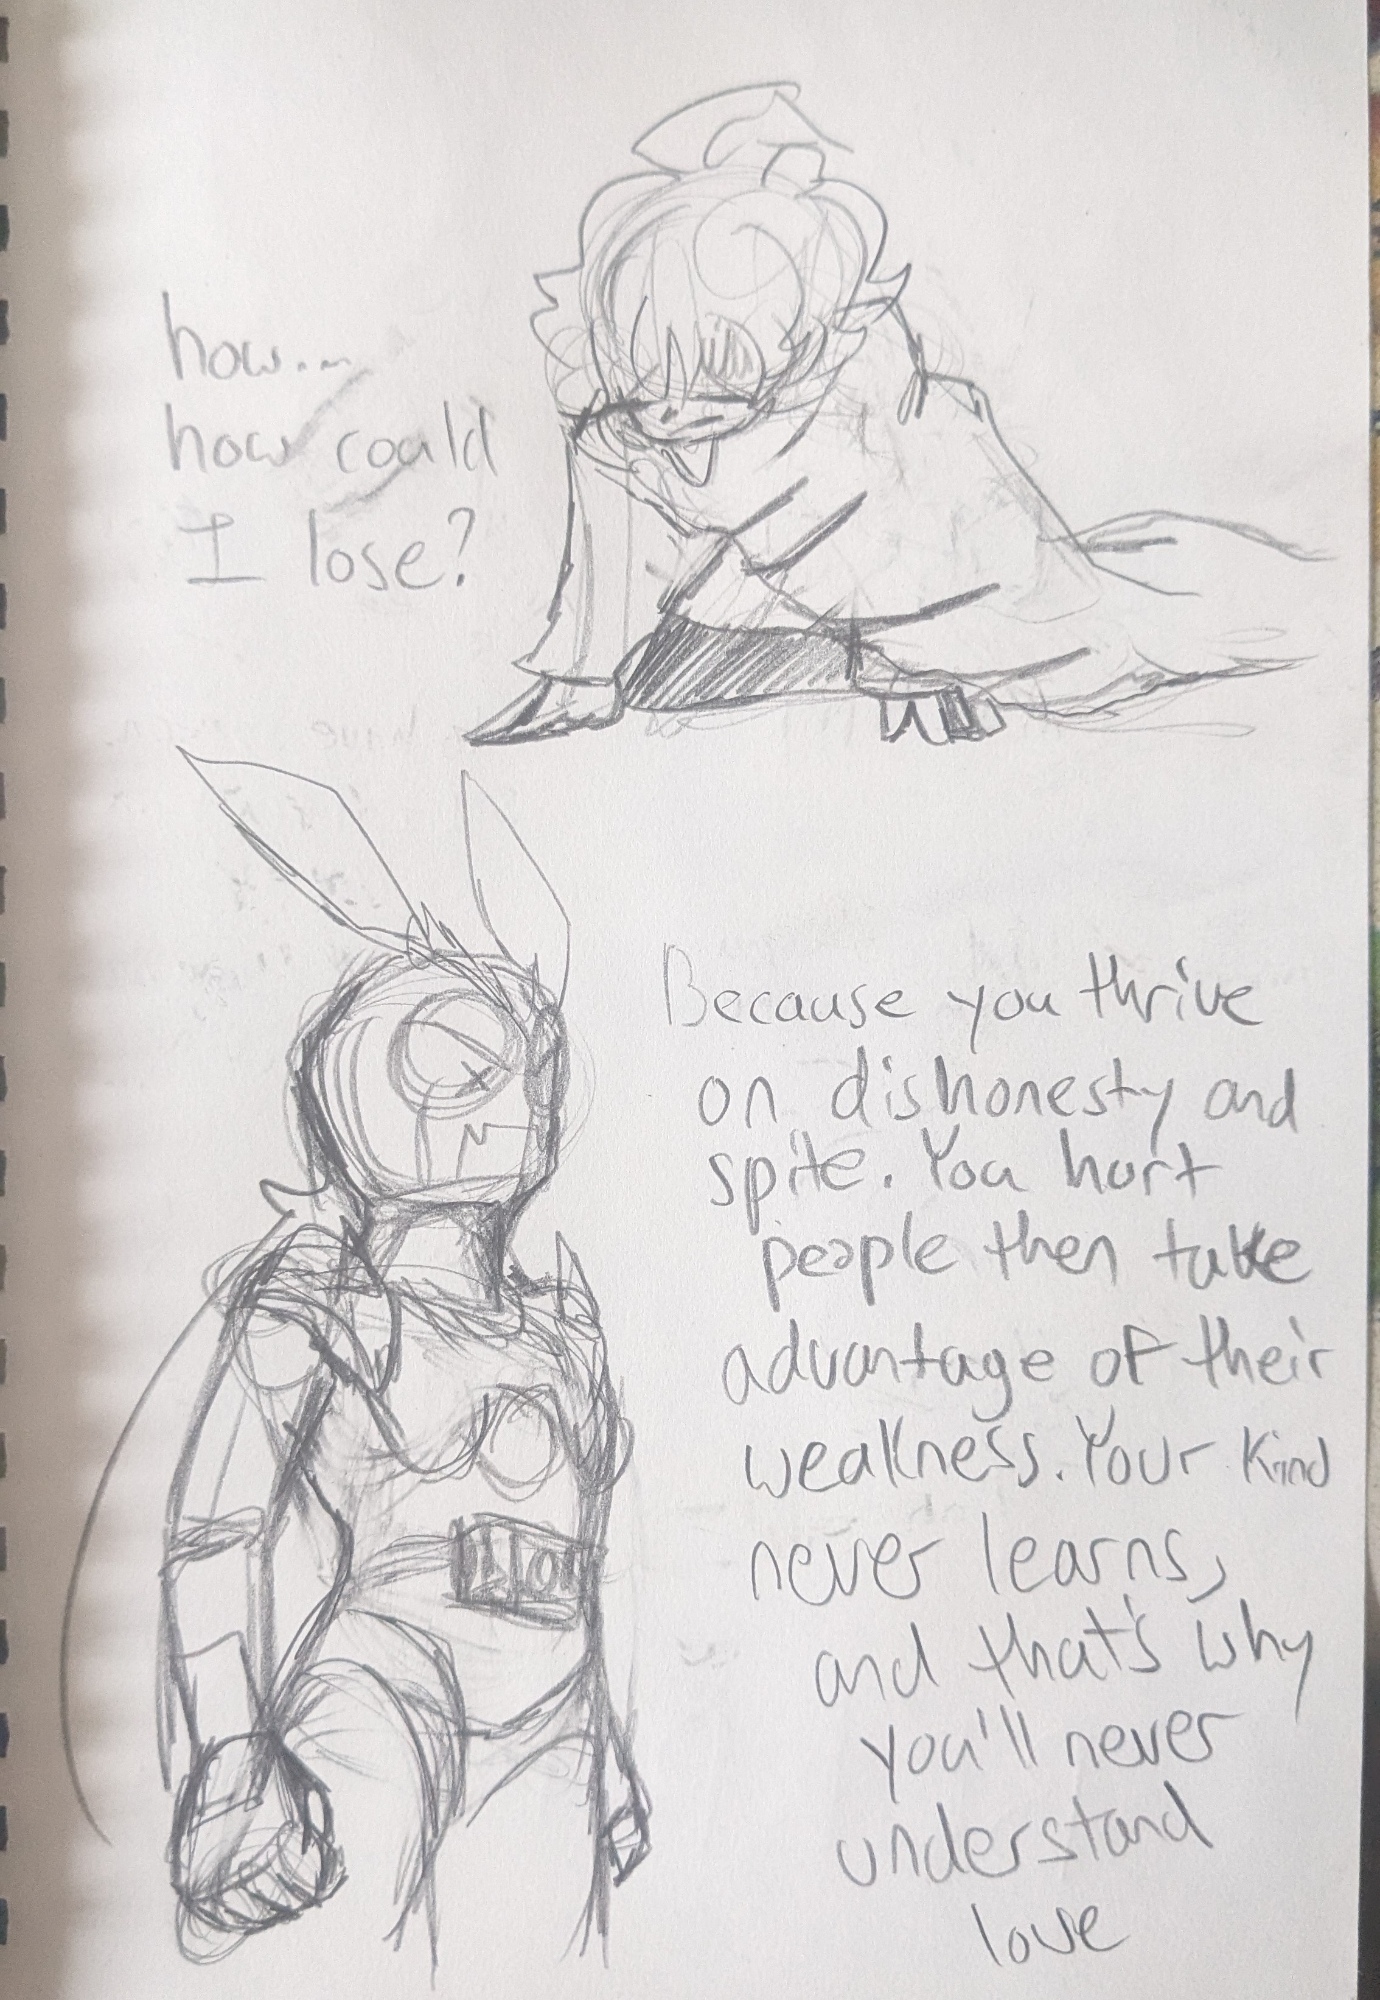 how...
how could
I lose?
Because you thrive
on dishonesty and
spite. You hurt
people then take
advantage of their
weakness. Your kind
never learns,
and that's why
you'll never
understand
love